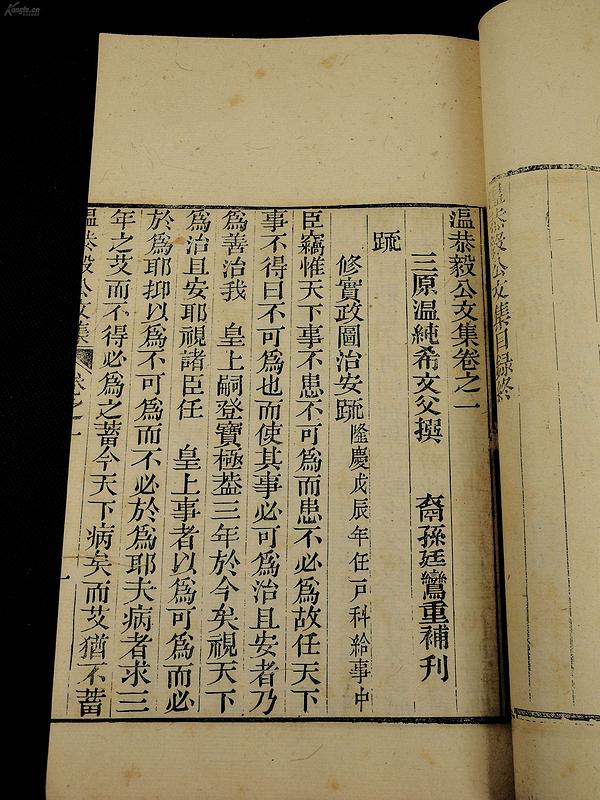 Kongfz.cn
温恭毅公文集目錄終
温恭毅公文集卷之一
三原温純希文父撰 裔孫廷鸞重補刊
䟽
修實政圖治安䟽 隆慶戊辰年任戸科給事中
臣竊惟天下事不患不可爲而患不必爲故任天下
事不得曰不可爲也而使其事必可爲治且安者乃
爲善治我 皇上嗣登寶極葢三年於今矣視天下
爲治且安耶視諸臣任 皇上事者以爲可爲而必
於爲耶抑以爲不可爲而不必於爲耶夫病者求三
年之艾而不得必爲之蓄今天下病矣而艾猶不蓄
温恭毅公文集 卷之一 一